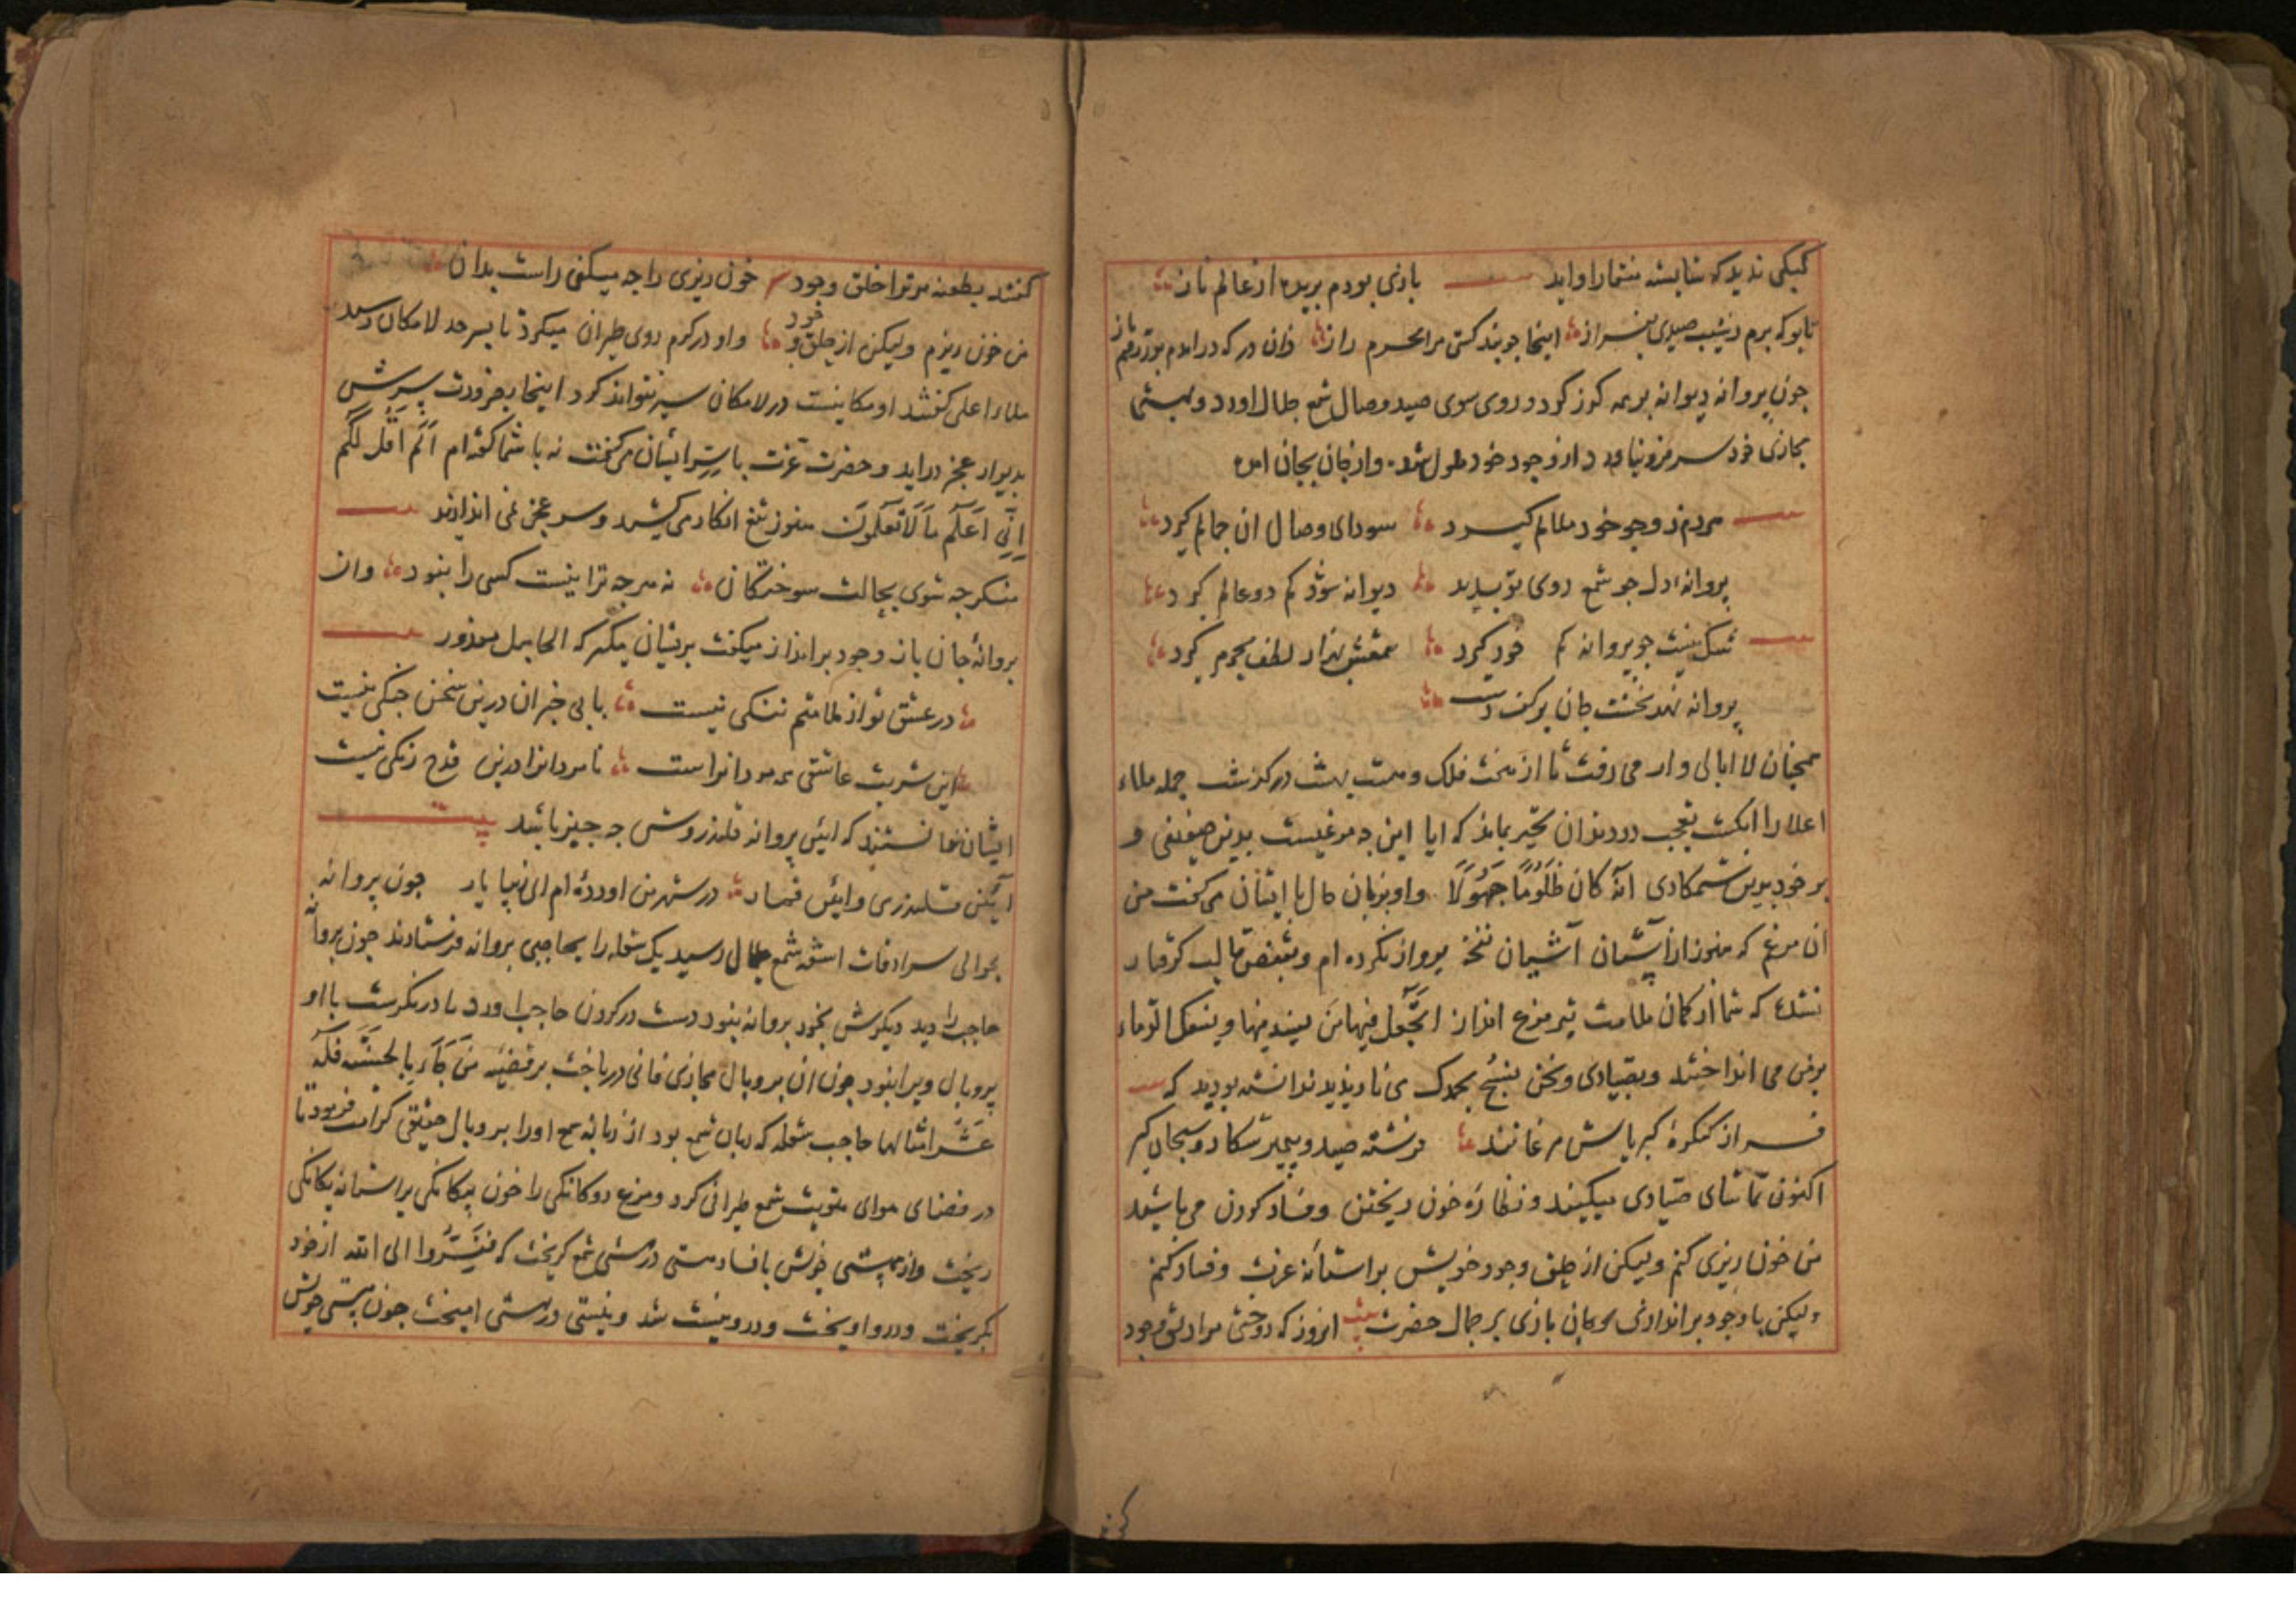 بازی بودم پریده از عالم ناز
تا بو که برم ز شیب صیدی بفراز اینجا چو نیافتم کسی محرم راز زان در که در امدم بدر رفتم باز
چون پروانه دیوانه بر همه گذر کرد و روی سوی صید وصال شمع جلال اورد و بهستی
مجازی خود سر فرو نیاورد از وجود خود ملول شده و از جان بجان امده
هر دم ز وجود خود ملالم گیرد سودای وصال ان جمالم گیرد
پروانه دل چو شمع روی تو بدید دیوانه شود کم دو عالم گیرد
شک نیست چو پروانه کم خود گیرد شمعش بهزار لطف
پروانه نهد نخست جان بر کف دست
همچنان لا ابالی وار می رفت تا از هفت فلک و هشت بهشت در گذشت جمله ملاء
اعلا را انگشت تعجب در دندان تحیر بماند که ایا این چه مرغیست بدین ضعیفی و
بر خود بدین ستمکاری انه کان ظلوما جهولا و او بزبان حال با ایشان می گفت من
ان مرغم که هنوز از اشیان نفخت پرواز نکرده ام و بقفص قالب گرفتار
نشده که شما از کمان ملامت تیر اتجعل فیها من یفسد فیها و یسفک الدماء
بر من می انداختید و بصیادی و نحن نسبح بحمدک می نازیدید ندانسته بودید که
فراز کنگره کبریایش مرغانند فرشته صید و پیمبر شکار و سبحان گیر
اکنون تماشای صیادی میکنید و نظاره خون ریختن و فساد کردن می باشید
من خون ریزی کنم و لیکن از خلق وجود خویش بر استانه عزت و فساد کنم
ولیکن با وجود براندازی و جان بازی بر جمال حضرت بیت انروز که
کنند بطعنه مر ترا خلق وجود خون ریزی را چه میکنی راست بدان
من خون ریزم ولیکن از حلق وجود و او در گرم روی طیران میکرد تا بسرحد لامکان رسید
ملاء اعلی گفتند او مکانیست در لامکان سیر نتواند کرد اینجا بضرورت پرش
بدیوار عجز دراید و حضرت عزت با سر ایشان می گفت نه با شما گفته ام الم اقل لکم
انی اعلم ما لا تعلمون هنوز تیغ انکار می کشید و سپر عجز نمی اندازید
منکر چه شوی بحالت سوختگان نه هر چه ترا نیست کسی را نبود وان
پروانه جان باز وجود برانداز میگفت بریشان مگیر که الجاهل معذور
در عشق تو از ملامتم ننگی نیست با بی خبران درین سخن جنگی نیست
این شربت عاشقی همه مردانراست نامردانرا درین قدح رنگی نیست
ایشان ندانستند که این پروانه قلندروش چه چیز باشد بیت
ایین قلندری و ایین قمار در شهر من اورده ام ای زیبا یار چون پروانه
بحوالی سرادقات اشعه شمع جلال رسید یک شعله را بحاجبی پروانه فرستادند چون پروانه
حاجب را دید دیگرش بخود پروانه نبود دست در گردن حاجب اورد تا در نگرست با او
پر و بال ویرا نبود چون ان پر و بال مجازی فانی در باخت بر قضیه من جاء بالحسنة فله
عشر امثالها حاجب شعله که زبان شمع بود از زبانه شمع او را پر و بال حقیقی کرامت فرمود تا
در فضای هوای هویت شمع طیرانی کرد و مرغ دوگانگی را خون بیگانگی بر استانه یگانگی
ریخت و از هستی خویش با فساد مستی در هستی شمع گریخت که ففروا الی الله از خود
بگریخت و درو اویخت و درو نیست شد و نیستی در هستی امیخت چون هستی خویش